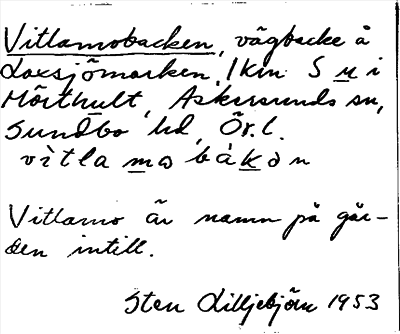 Vitlamobacken, vägbacke å
Laxsjömarken, 1 km S u i
Mörthult, Askersunds sn,
Sundbo hd, Ör. l.
vìtla mω bákòn
Vitlamo är namn på går-
den intill.
Sten Lilljebjörn 1953